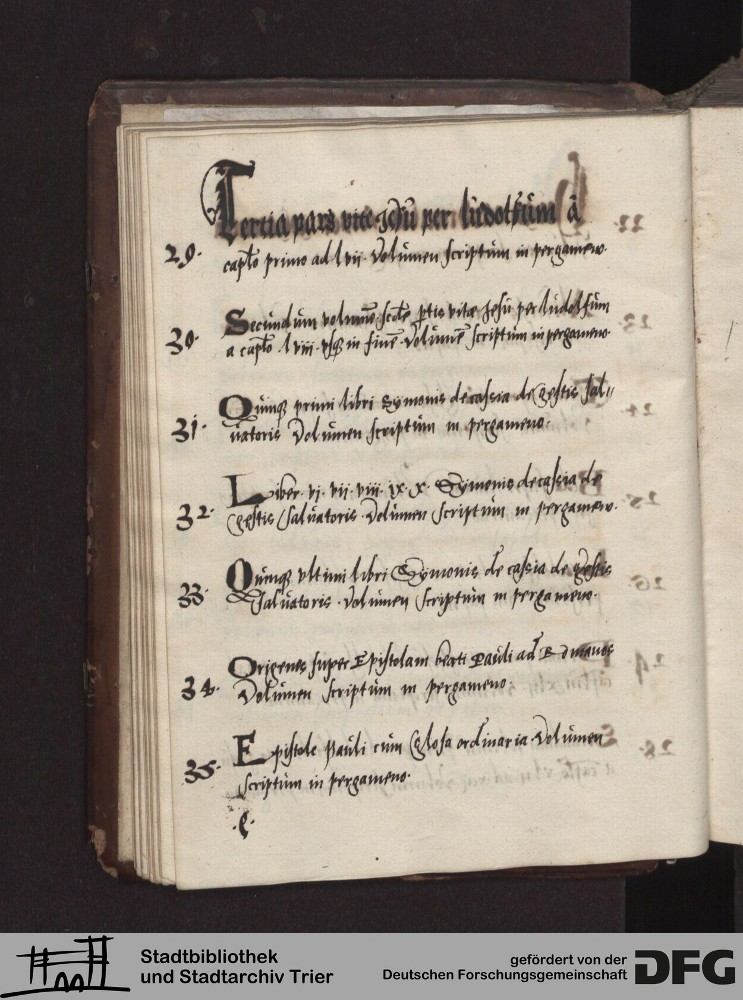 Tertia pars vite Jhesu per ludolfum a
29. capło primo ad lvii. Volumen scriptum in pergameno.
Secundum volumē scdē ptis vitæ Jesu per ludolfum
30. a capło .lviii. vsq in finē. Volumē scriptum in pergameno.
Quinq primi libri Symonis de cassia de gestis sal„
31. uatoris Volumen scriptum in pergameno.
Liber. vj. vij. viii. ix. x. Symonis de cassia de
32. gestis Salvatoris. Volumen scriptum in pergameno.
Quinq vltimi libri Symonis de cassia de gestis
33. Salvatoris. Volumen scriptum in pergameno.
Origenes super Epistolam beati Pauli ad Romanos
34. Volumen scriptum in pergameno.
Epistole Pauli cum Glosa ordinaria Volumen
35. scriptum in pergameno.
Stadtbibliothek
und Stadtarchiv Trier
gefördert von der
Deutschen Forschungsgemeinschaft
DFG